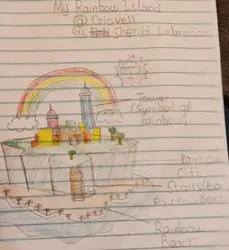 My Rainbow Island
@ Giovell
@ Sheriff
Tower
(Symbol of
rainbow)
Rainbow
Cliff
Stairs to
Rainbow Beach
Rainbow
Beach